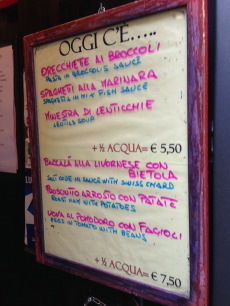 OGGI C'È.....
ORECCHIETTE AI BROCCOLI
PASTA IN BROCCOLIS SAUCE
SPAGHETI ALLA MARINARA
SPAGHETTI IN MIX FISH SAUCE
MINESTRA DI LENTICCHIE
LENTILS SOUP
+ ½ ACQUA= € 5,50
BACCALÀ ALLA LIVORNESE CON
BIETOLA
SALT CODE IN SAUCE WITH SWISS CHARD
PROSCIUTTO ARROSTO CON PATATE
ROAST HAM WITH POTATOES
UOVA AL POMODORO CON FAGIOLI
EGGS IN TOMATO WITH BEANS
+ ½ ACQUA= € 7,50